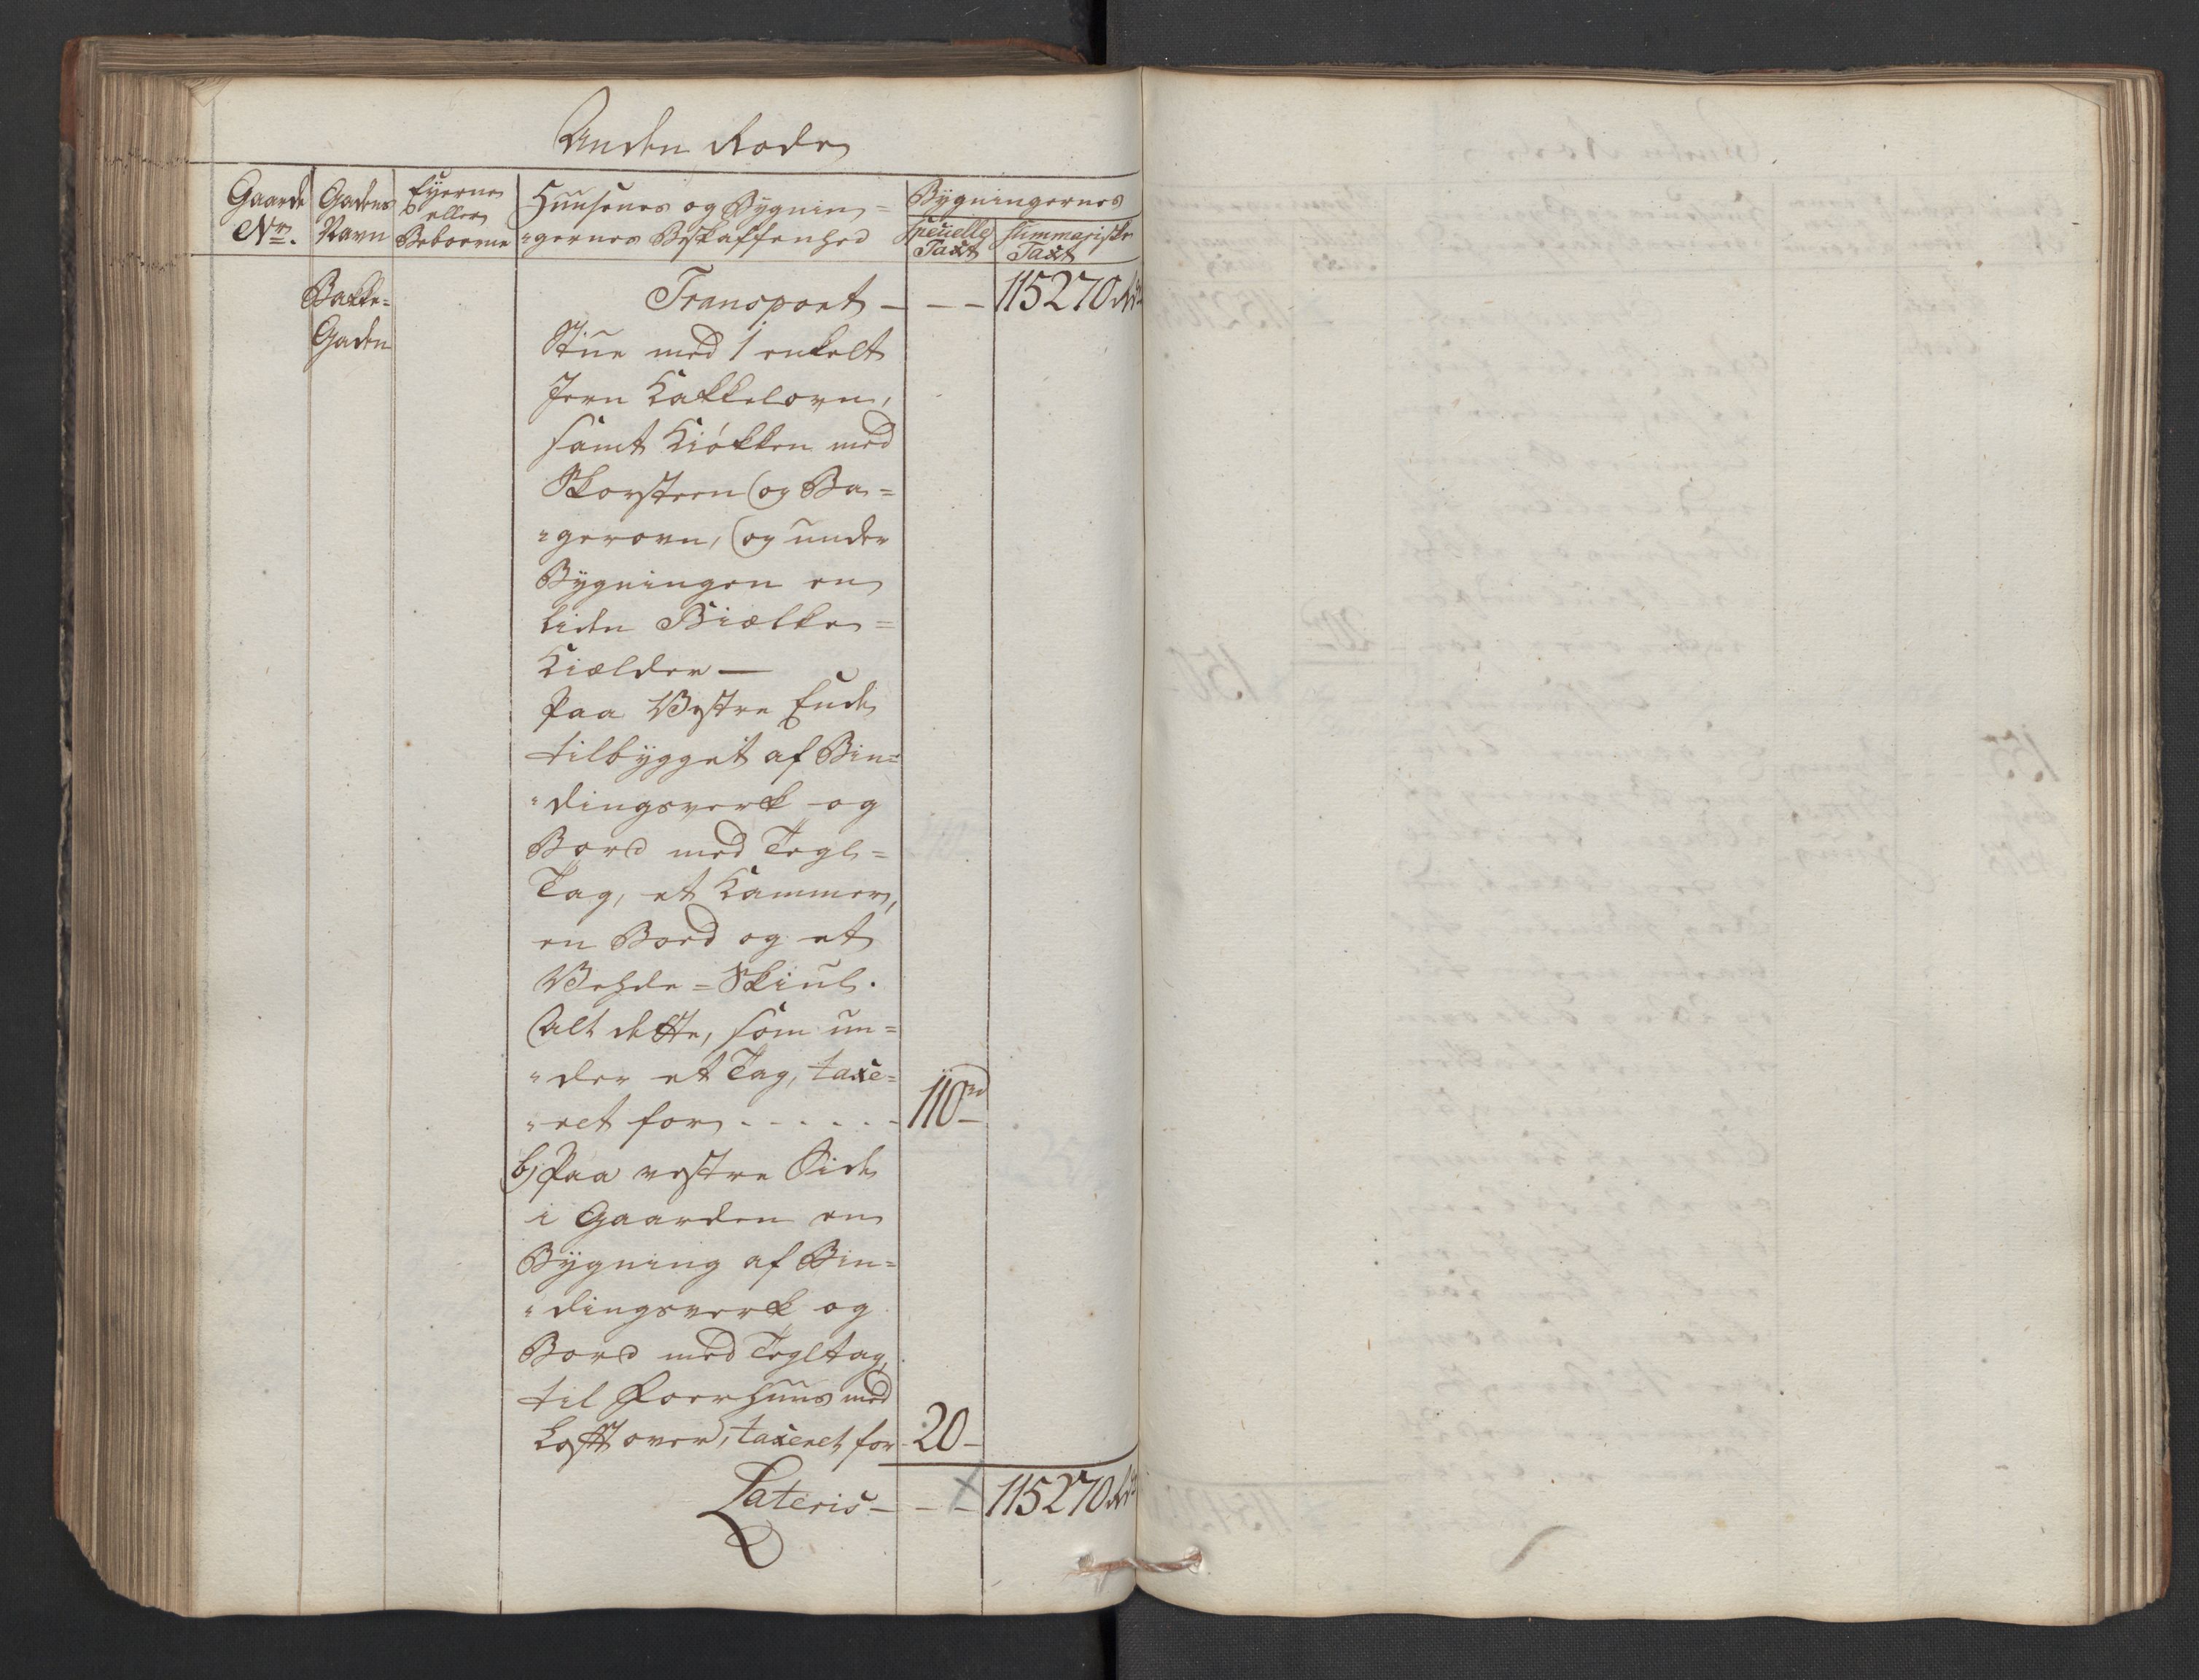 Anden Rode
Gaarde Nr.
Gadens Navn
Eyerne eller Beboerne
Huusenes og Bygnin=
=gernes Beskaffenhed
Bygningernes
specielle Taxt
summariske Taxt
Bakke=
Gaden
Transport - - - 115270 Rdr
Stue med 1 enkelt
Jern Kakkelovn,
samt Kiökken med
Skorsteen og Ba=
=gerovn, og under
Bygningen en
liden Biælke=
Kielder —
Paa Vestre Ende
tilbygget af Bin=
=dingsverk og
Bord med Tegl=
Tag, et Kammer,
en Boed og et
Vehde=Skiul.
Alt dette, som un=
=der et Tag, taxe=
=ret for . . . . . - 110 rd -
b) Paa vestre Side
i Gaarden en
Bygning af Bin=
=dingsverk og
Bord med Tegltag,
til Foerhuus med
Lofft over, taxeret for 20 -
Lateris - - - 115270 Rdr